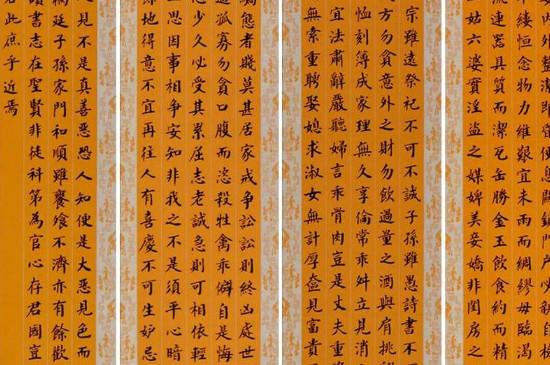 外整潔昏便息關鎖門必
縷恒念物力維艱宜未雨而綢繆毋臨渴
流連器具質而潔瓦缶勝金玉飲食約而精
姑六婆實淫盜之媒婢美妾嬌非閨房之
宗雖遠祭祀不可不誠子孫雖愚詩書不可
方勿貪意外之財勿飲過量之酒與肩挑
恤刻薄成家理無久享倫常乖舛立見消
宜法肅辭嚴聽婦言乖骨肉豈是丈夫重
無索重聘娶媳求淑女無計厚奩見富貴
態者賤莫甚居家戒爭訟訟則終凶處世
逼孤寡勿貪口腹而恣殺牲禽乖僻自是悔
少久必受其累屈志老誠急則可相依輕
思因事相爭安知非我之不是須平心暗
地得意不宜再往人有喜慶不可生妒忌
見不是真善惡恐人知便是大惡見色而
禍延子孫家門和順雖饔飧不濟亦有餘歡
讀書志在聖賢非徒科第為官心存君國豈
此庶乎近焉